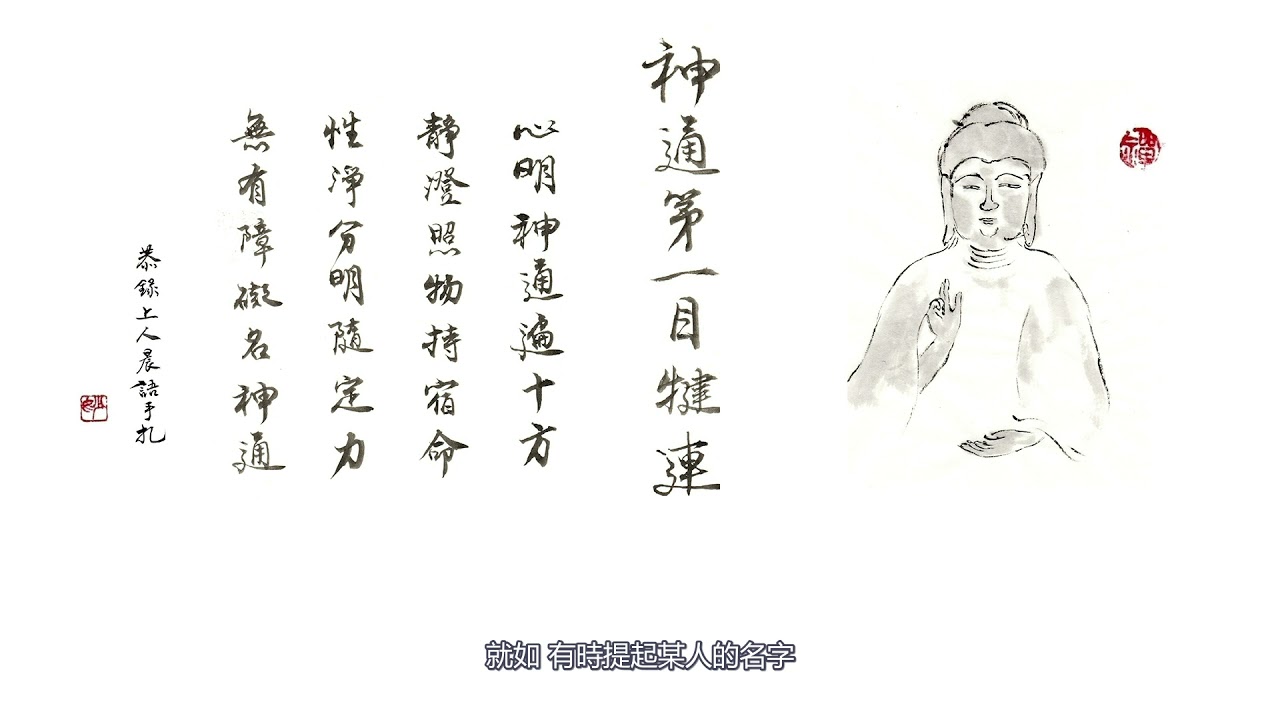 神通第一目犍連
心明神通遍十方
靜澄照物持宿命
性淨分明隨定力
無有障礙名神通
恭錄上人晨語手扎
就如 有時提起某人的名字